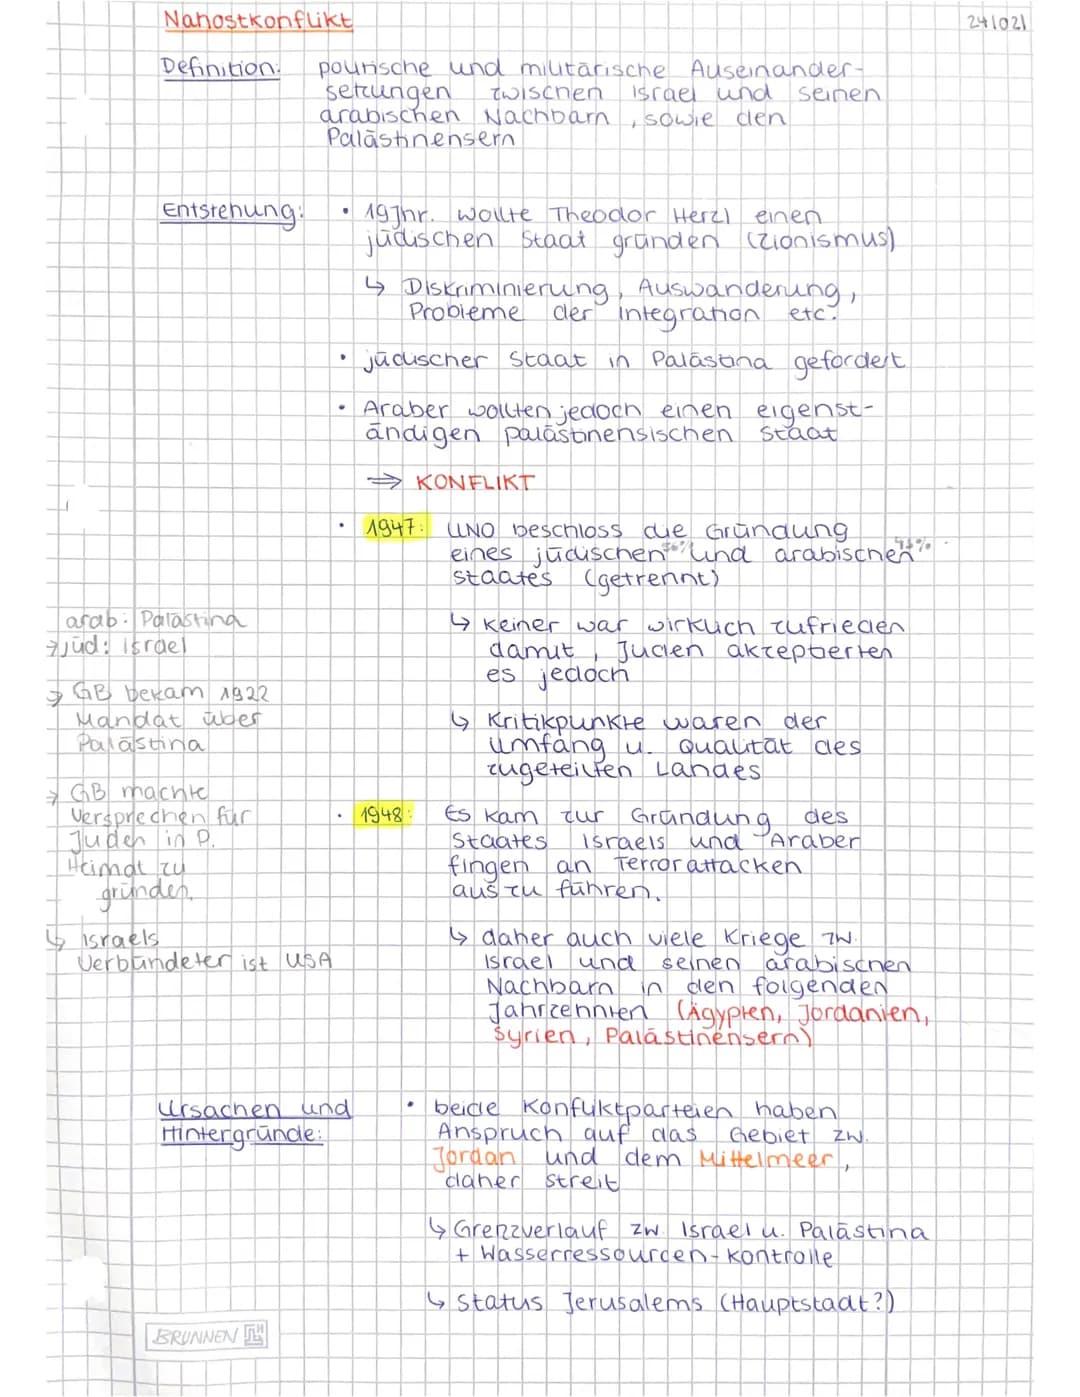 Nahostkonflikt
24/02/
Definition: politische und militärische Auseinander-
setzungen zwischen Israel und seinen
arabischen Nachbarn, sowie den
Palästinensern
Entstehung: • 19Jhr. wollte Theodor Herzl einen
jüdischen Staat gründen (Zionismus)
↳ Diskriminierung, Auswanderung,
Probleme der Integration etc.
• jüdischer Staat in Palästina gefordert
• Araber wollten jedoch einen eigenst-
ändigen palästinensischen Staat
⇒ KONFLIKT
• 1947: UNO beschloss die Gründung
eines jüdischen und arabischen
Staates (getrennt)
↳ keiner war wirklich zufrieden
damit, Juden akzeptierten
es jedoch
↳ Kritikpunkte waren der
Umfang u. Qualität des
zugeteilten Landes
arab: Palästina
→ jüd: Israel
→ GB bekam 1922
Mandat über
Palästina
→ GB machte
Versprechen für
Juden in P.
Heimat zu
gründen.
↳ Israels
Verbündeter ist USA
• 1948: Es kam zur Gründung des
Staates Israels und Araber
fingen an Terrorattacken
aus zu führen.
↳ daher auch viele Kriege zw.
Israel und seinen arabischen
Nachbarn in den folgenden
Jahrzehnten (Ägypten, Jordanien,
Syrien, Palästinensern)
Ursachen und
Hintergründe:
• beide Konfliktparteien haben
Anspruch auf das Gebiet zw.
Jordan und dem Mittelmeer,
daher streit
↳ Grenzverlauf zw. Israel u. Palästina
+ Wasserressourcen-kontrolle
↳ Status Jerusalems (Hauptstadt?)
BRUNNEN